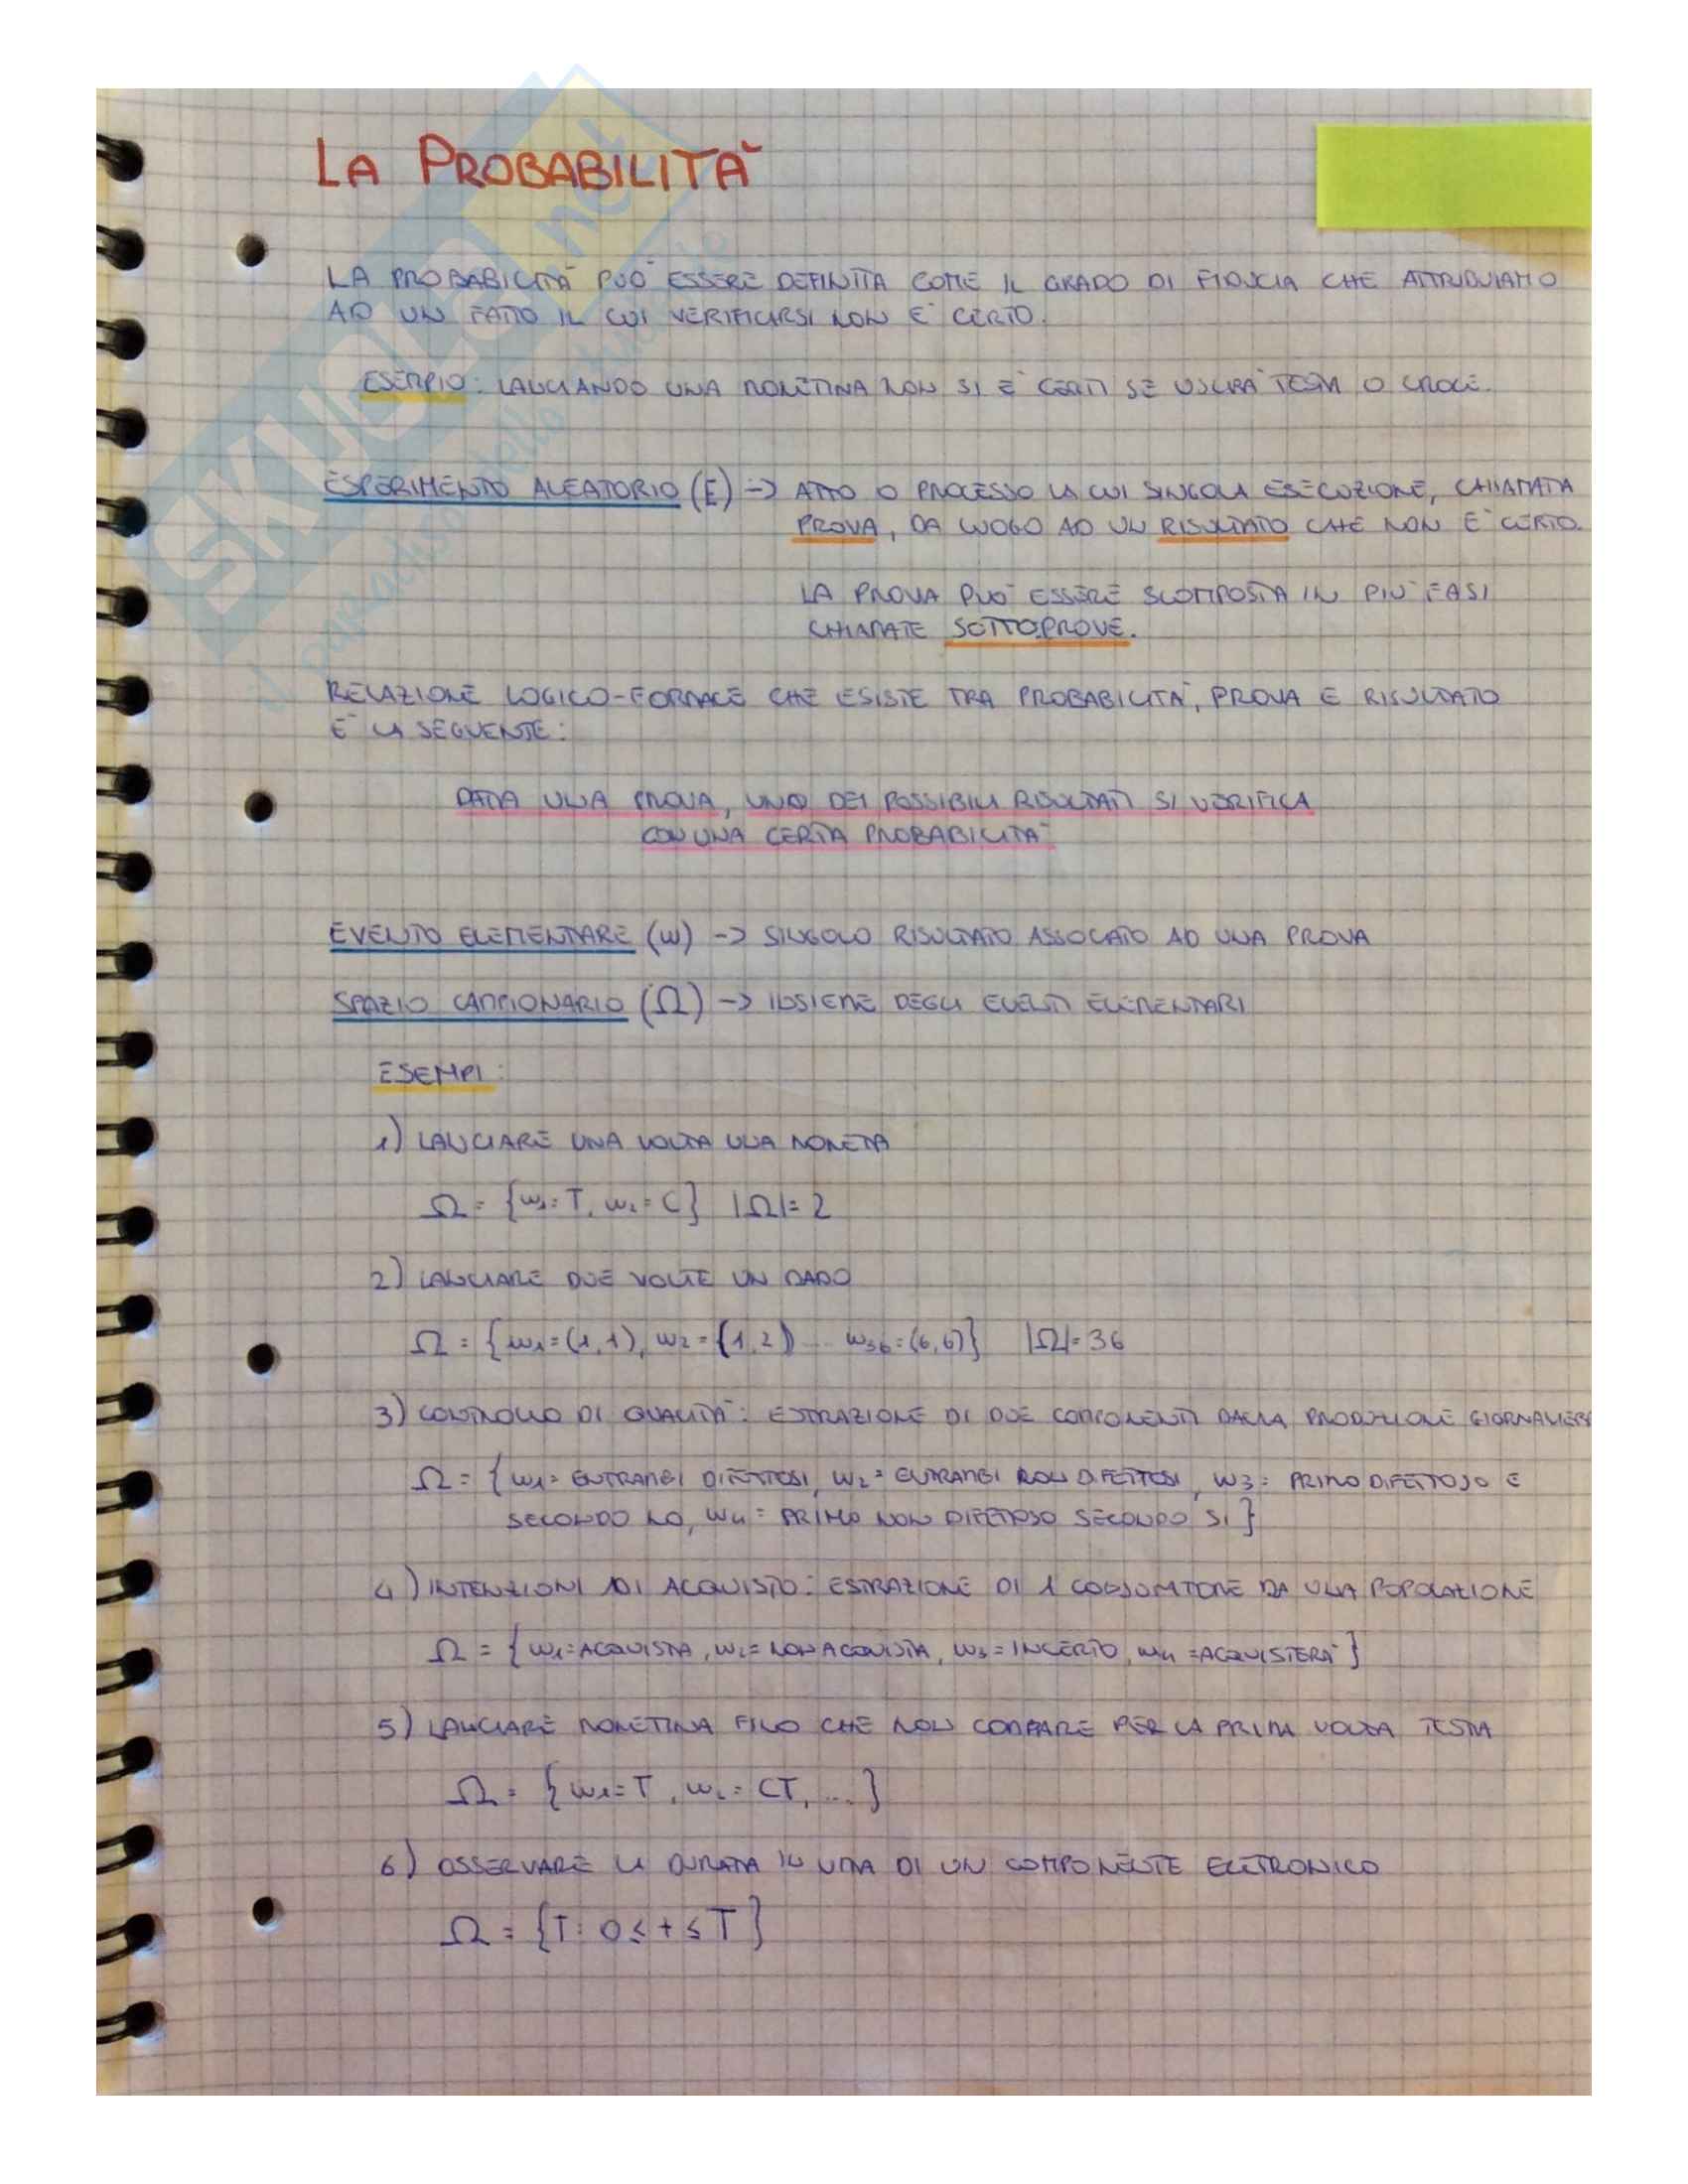 LA PROBABILITÀ
LA PROBABILITÀ PUÒ ESSERE DEFINITA COME IL GRADO DI FIDUCIA CHE ATTRIBUIAMO
AD UN FATTO IL CUI VERIFICARSI NON È CERTO.
ESEMPIO: LANCIANDO UNA MONETINA NON SI È CERTI SE USCIRÀ TESTA O CROCE.
ESPERIMENTO ALEATORIO (E) -> ATTO O PROCESSO LA CUI SINGOLA ESECUZIONE, CHIAMATA
PROVA, DA LUOGO AD UN RISULTATO CHE NON È CERTO.
LA PROVA PUÒ ESSERE SCOMPOSTA IN PIÙ FASI
CHIAMATE SOTTOPROVE.
RELAZIONE LOGICO-FORMALE CHE ESISTE TRA PROBABILITÀ, PROVA E RISULTATO
È LA SEGUENTE:
DATA UNA PROVA, UNO DEI POSSIBILI RISULTATI SI VERIFICA
CON UNA CERTA PROBABILITÀ
EVENTO ELEMENTARE (ω) -> SINGOLO RISULTATO ASSOCIATO AD UNA PROVA
SPAZIO CAMPIONARIO (Ω) -> INSIEME DEGLI EVENTI ELEMENTARI
ESEMPI:
1) LANCIARE UNA VOLTA UNA MONETA
Ω = {ω1 = T, ω2 = C} |Ω| = 2
2) LANCIARE DUE VOLTE UN DADO
Ω = {ω1 = (1,1), ω2 = (1,2) ... ω36 = (6,6)} |Ω| = 36
3) CONTROLLO DI QUALITÀ: ESTRAZIONE DI DUE COMPONENTI DALLA PRODUZIONE GIORNALIERA
Ω = {ω1 = ENTRAMBI DIFETTOSI, ω2 = ENTRAMBI NON DIFETTOSI, ω3 = PRIMO DIFETTOSO E
SECONDO NO, ω4 = PRIMO NON DIFETTOSO SECONDO SI}
4) INTENZIONI DI ACQUISTO: ESTRAZIONE DI 1 CONSUMATORE DA UNA POPOLAZIONE
Ω = {ω1 = ACQUISTA, ω2 = NON ACQUISTA, ω3 = INCERTO, ω4 = ACQUISTERÀ}
5) LANCIARE MONETINA FINO CHE NON COMPARE PER LA PRIMA VOLTA TESTA
Ω = {ω1 = T, ω2 = CT, ...}
6) OSSERVARE LA DURATA IN VITA DI UN COMPONENTE ELETTRONICO
Ω = {T: 0 ≤ t ≤ T}
SKUOLA.net
il paradiso dello studente